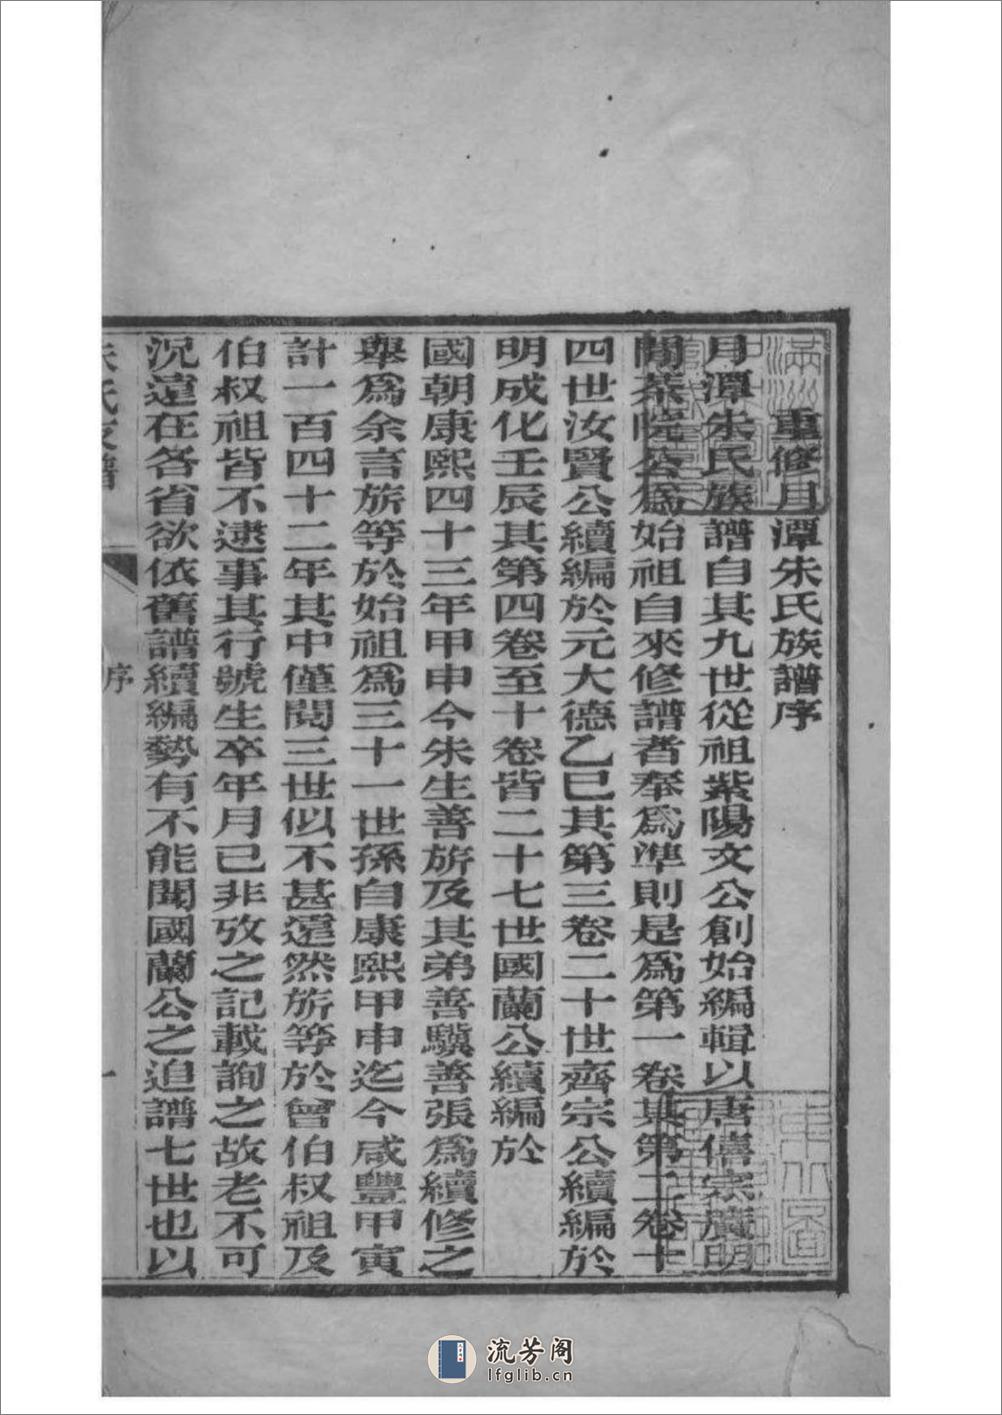 重修月潭朱氏族譜序
月潭朱氏族譜自其九世從祖紫陽文公創始編輯以唐僖宗廣明
間茶院公爲始祖自來修譜者奉爲準則是爲第一卷其第二卷十
四世汝賢公續編於元大德乙巳其第三卷二十世齊宗公續編於
明成化壬辰其第四卷至十卷皆二十七世國蘭公續編於
國朝康熙四十三年甲申今朱生善旂及其弟善驥善張爲續修之
舉爲余言旂等於始祖爲三十一世孫自康熙甲申迄今咸豐甲寅
計一百四十二年其中僅閱三世似不甚遠然旂等於曾伯叔祖及
伯叔祖皆不逮事其行號生卒年月已非攷之記載詢之故老不可
況遠在各省欲依舊譜續編勢有不能聞國蘭公之追譜七世也以
朱氏支譜
序
一
流芳阁
lfglib.cn